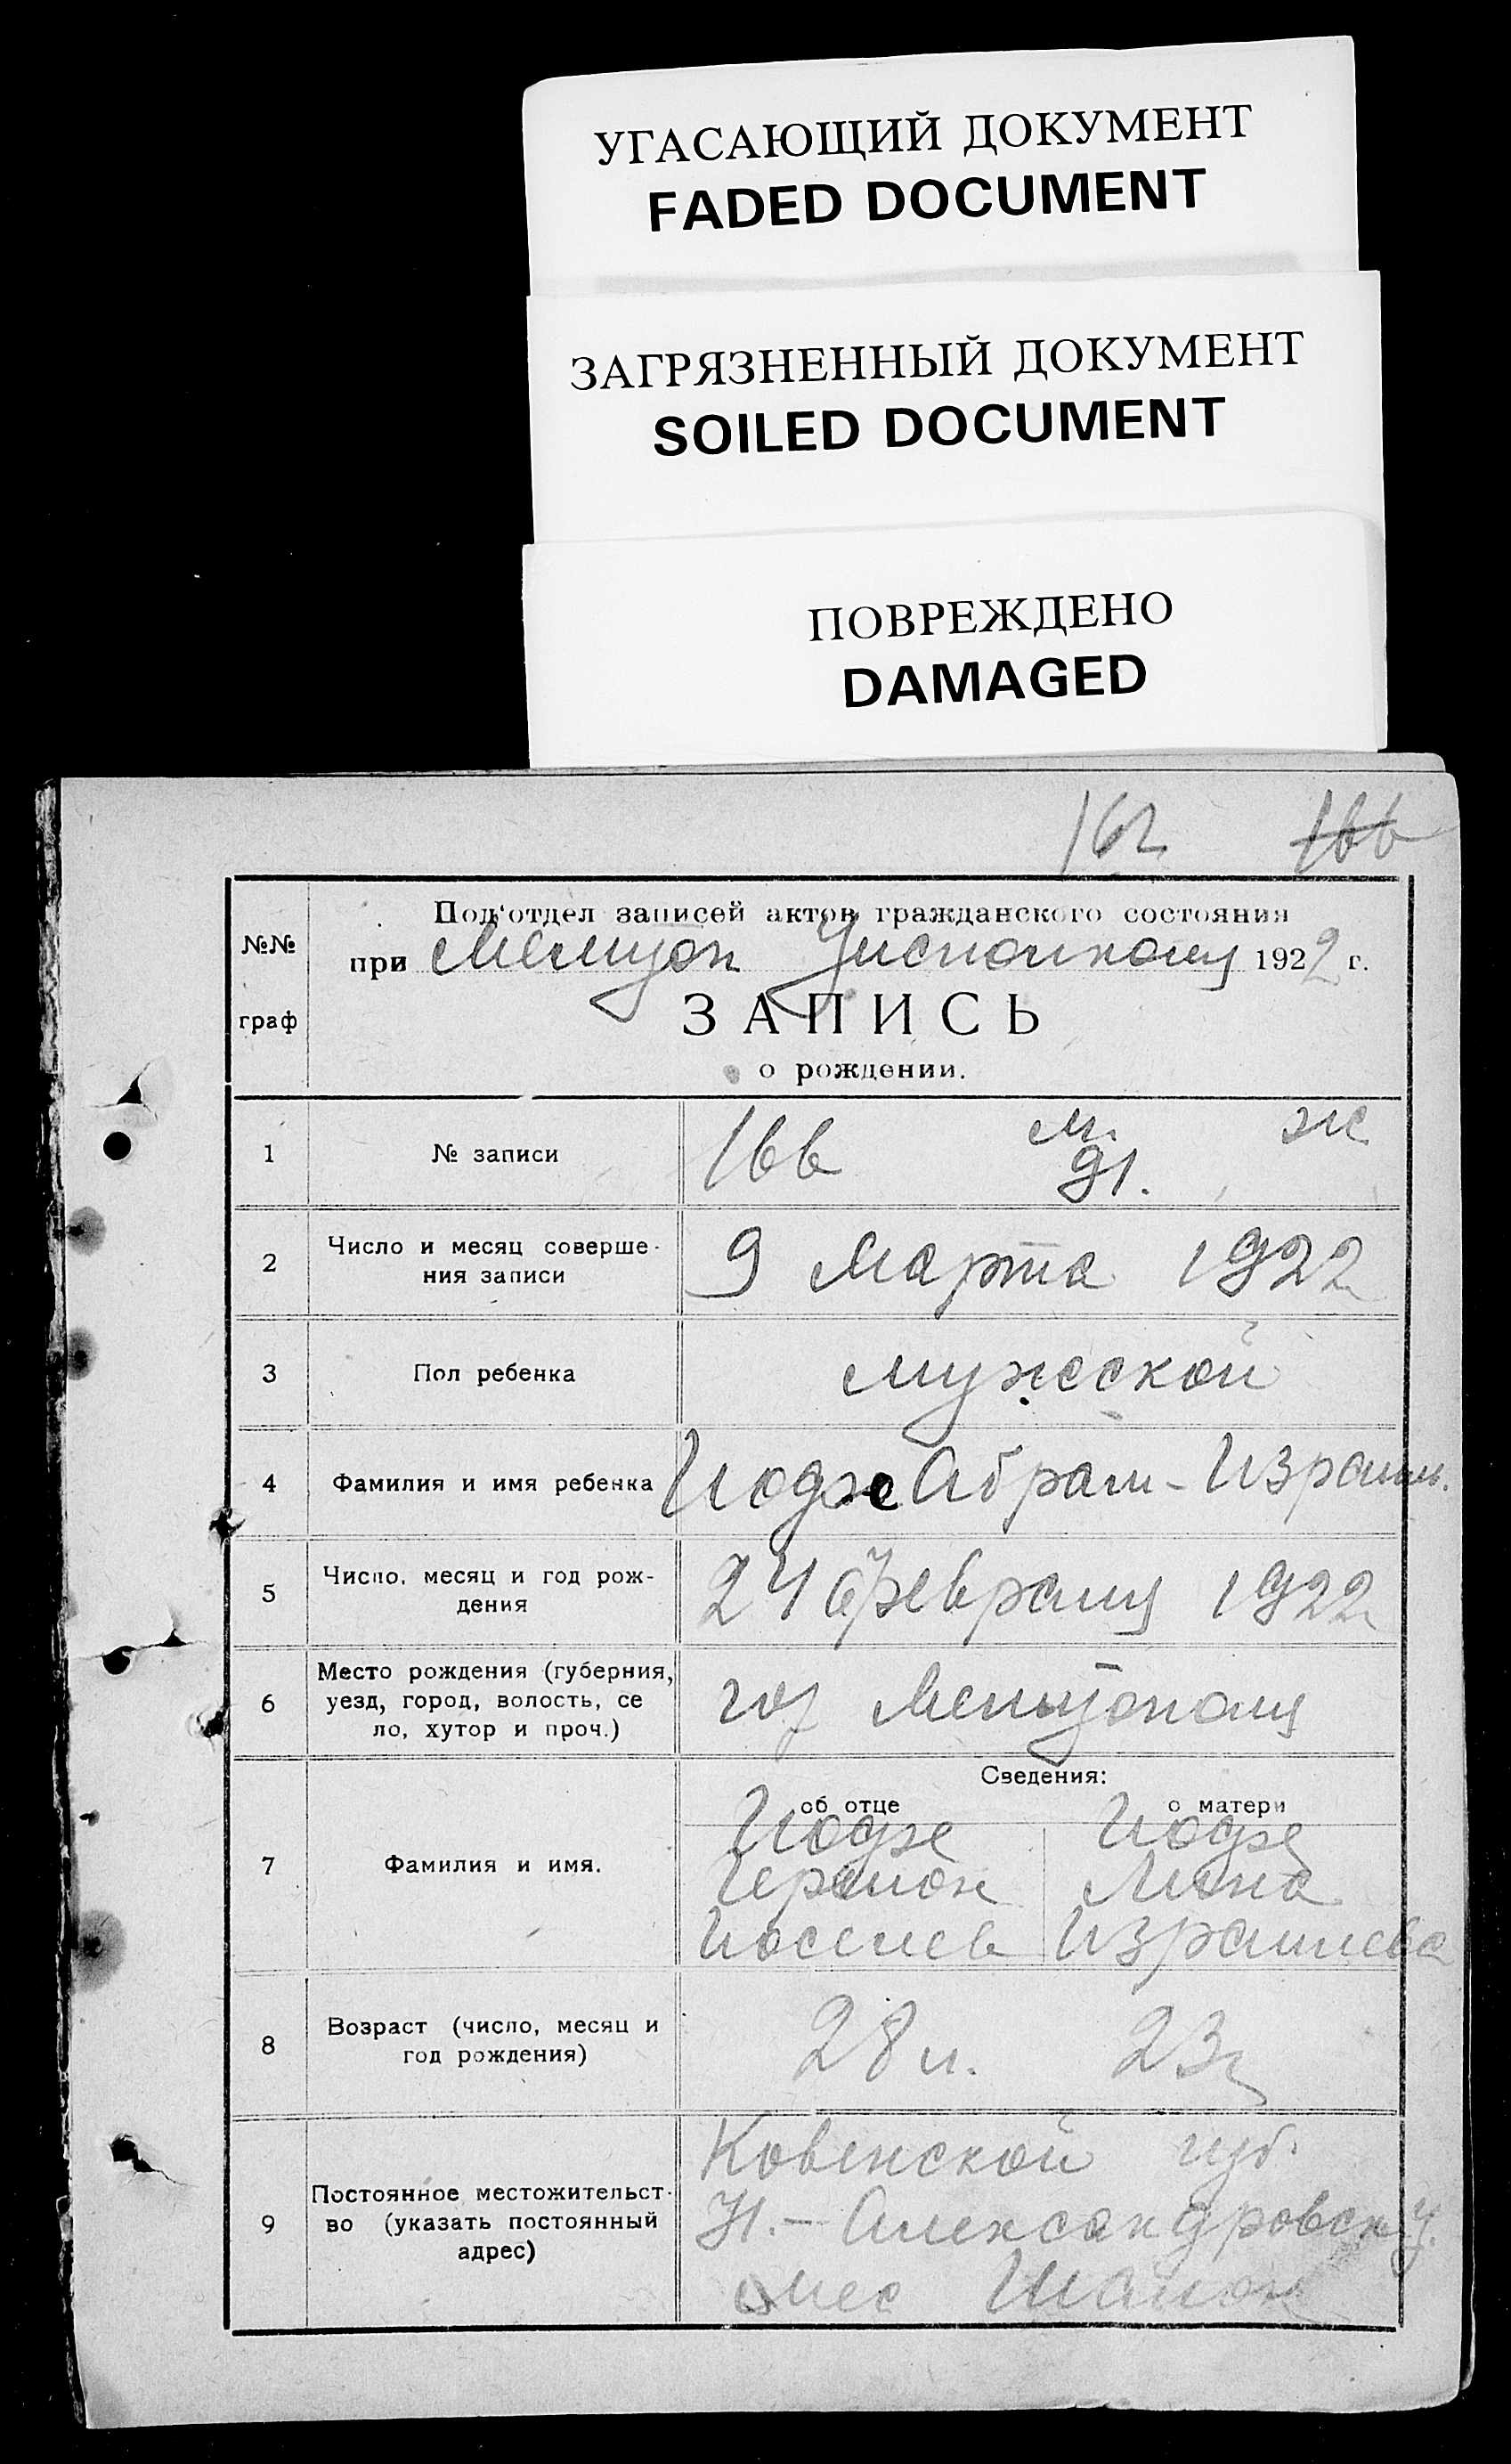 УГАСАЮЩИЙ ДОКУМЕНТ
FADED DOCUMENT
ЗАГРЯЗНЕННЫЙ ДОКУМЕНТ
SOILED DOCUMENT
ПОВРЕЖДЕНО
DAMAGED
162 166
№№
граф
Под‘отдел записей актов гражданского состояния
при 1922 г.
ЗАПИСЬ
о рождении.
1 № записи 166 м. 91. ж
2 Число и месяц соверше-
ния записи
9 Марта 1922
3 Пол ребенка мужеской
4 Фамилия и имя ребенка Иодже Абрам-Израил.
5 Число, месяц и год рож-
дения
24 февраля 1922
6 Место рождения (губерния,
уезд, город, волость, се
ло, хутор и проч.)
гор
Сведения:
об отце о матери
7 Фамилия и имя.
Иодже Иодже
Лина
Иоселев Израилева
8 Возраст (число, месяц и
год рождения)
28 л. 23
9 Постоянное местожительст-
во (указать постоянный
адрес)
Ковенской губ.
Н.-Александровск у.
мес